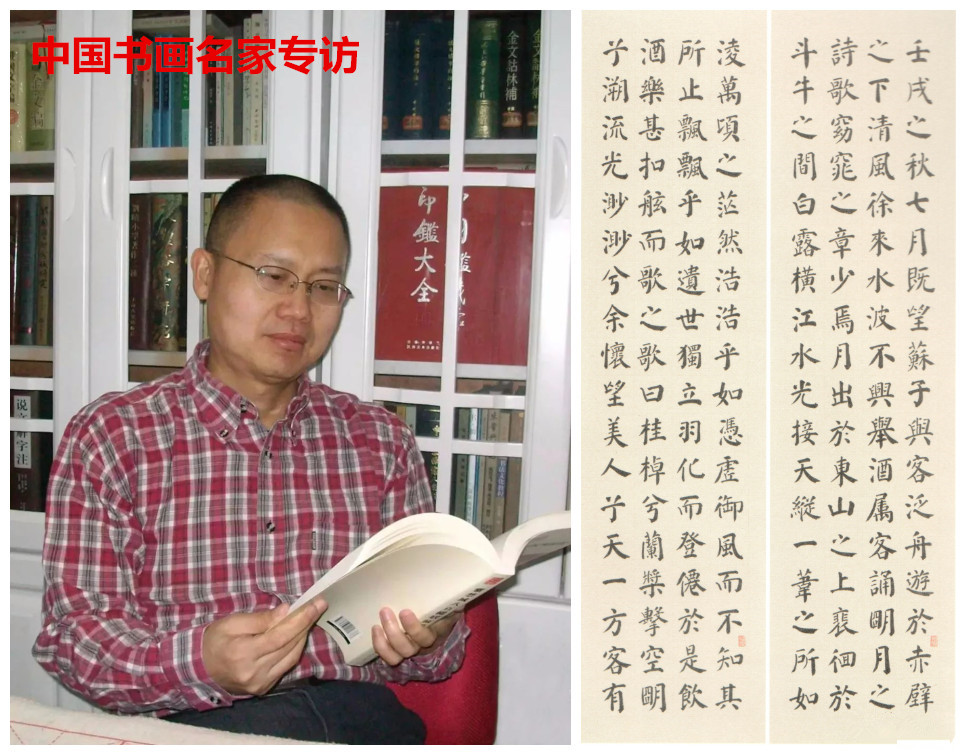 中国书画名家专访
金文诂林補
印鑑大全
说文解字注
壬戌之秋七月既望蘇子與客泛舟遊於赤壁
之下清風徐來水波不興舉酒属客誦眀月之
詩歌窈窕之章少焉月出於東山之上裵徊於
斗牛之間白露橫江水光接天縱一葦之所如
淩萬頃之茫然浩浩乎如憑虛御風而不知其
所止飄飄乎如遺世獨立羽化而登僊於是飲
酒樂甚扣舷而歌之歌曰桂棹兮蘭槳擊空眀
兮溯流光渺渺兮余懷望美人兮天一方客有